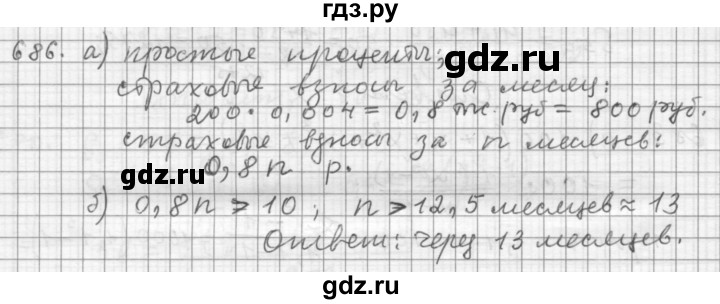 гдз.ру
686. а) простые проценты;
gdz.ru
страховые взносы за месяц:
200 · 0,004 = 0,8 т. руб = 800 руб.
страховые взносы за n месяцев:
0,8n р.
gdz.ru
б) 0,8n > 10 ; n > 12,5 месяцев ≈ 13
Ответ: через 13 месяцев.
gdz.ru
гдз.ру